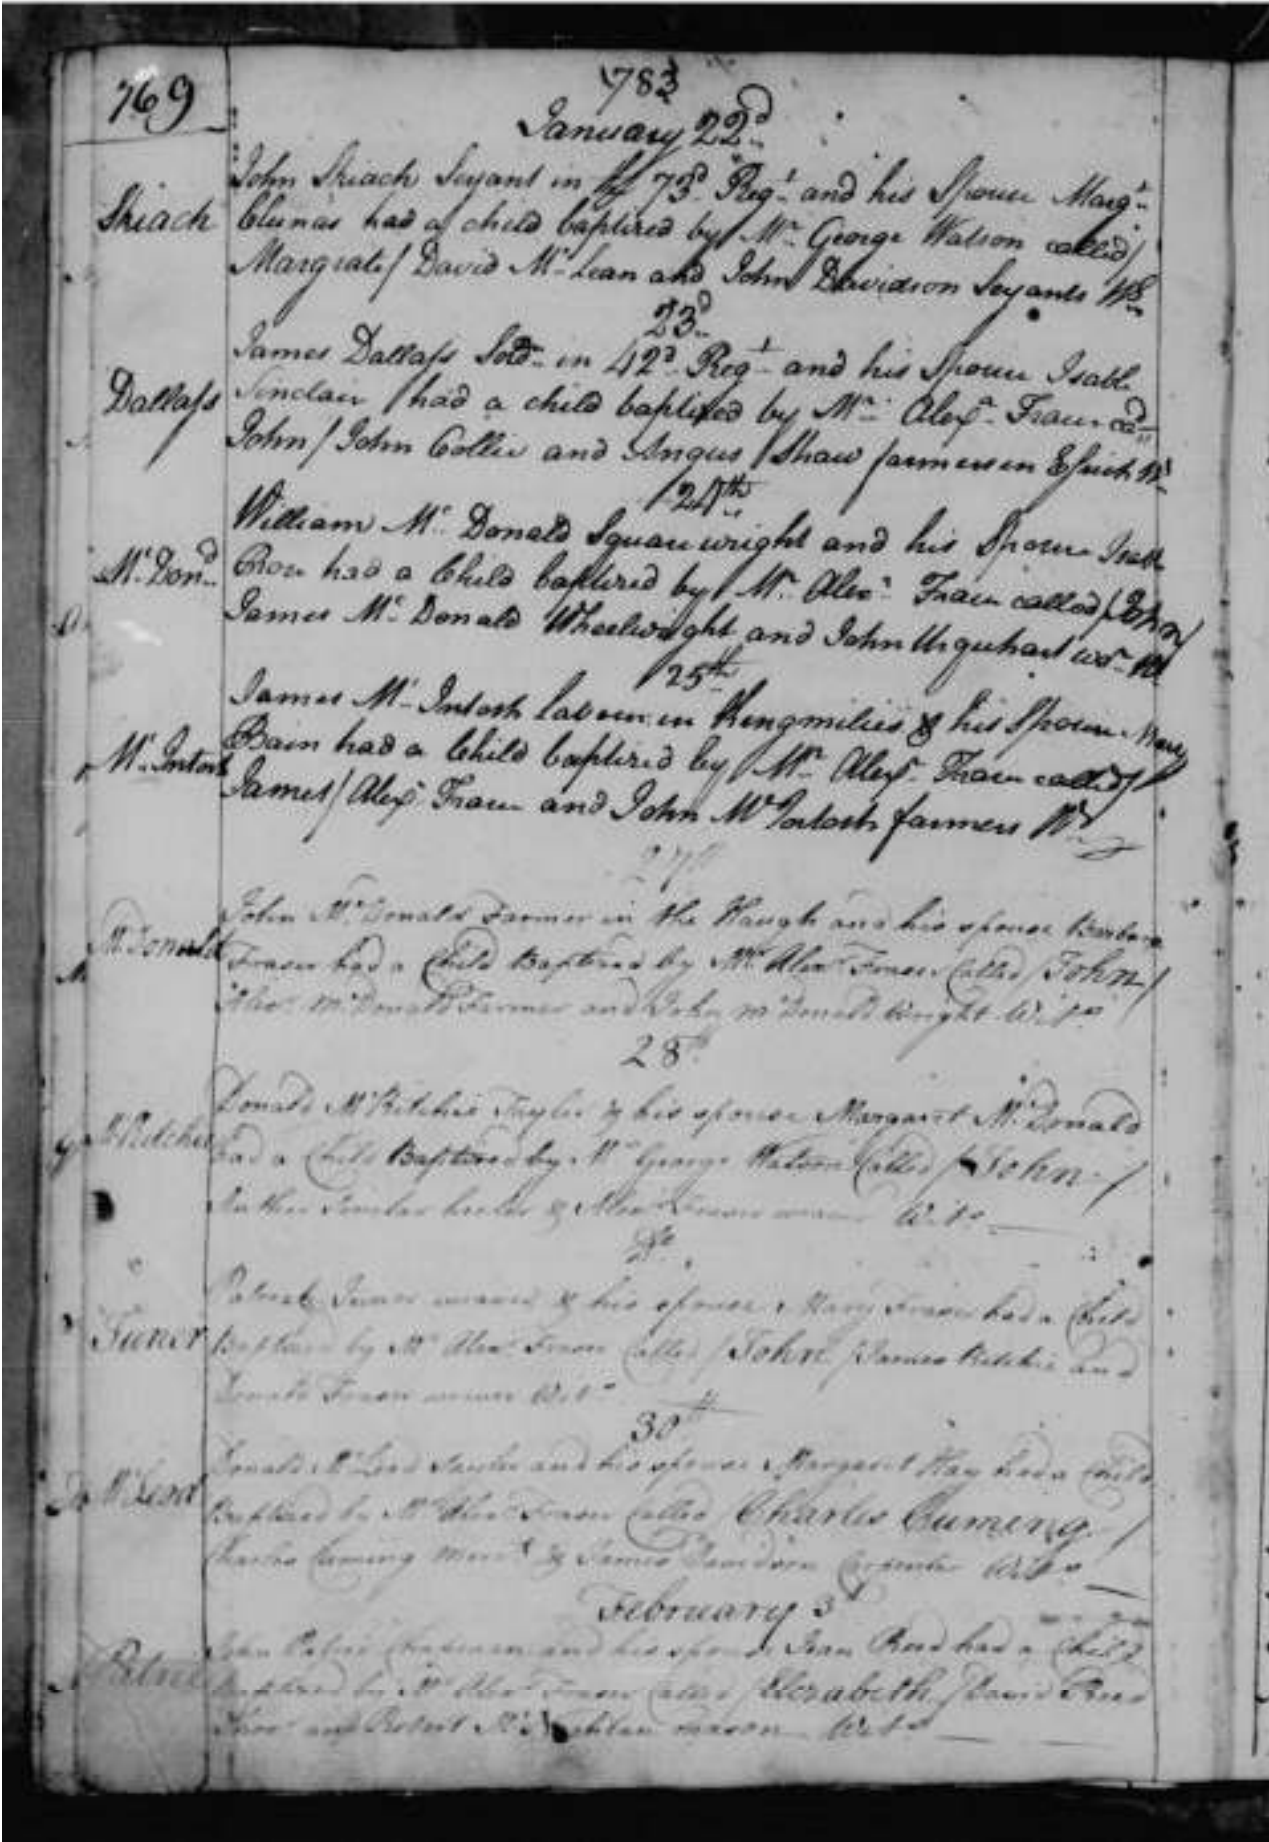 769
1783
January 22d
Skiach
John Skiach Serjant in 73d Regt and his Spouse Margt
Clunas had a child baptized by Mr George Watson called/
Margrate/ David Mc Lean and John Davidson Serjants Ws
23d
Dallass
James Dallass Sold in 42d Regt and his Spouse Isabl
Sinclair had a child baptized by Mr Alexr Fraser cad
John/ John Collie and Angus Shaw farmers in Essich Ws
24th
Mc Dond
William Mc Donald Squarewright and his Spouse Isabl
Rose had a Child baptized by Mr Alexr Fraser called/ John/
James Mc Donald Wheelwright and John Urquhart
25th
Mc Intosh
James Mc Intosh labourer in Kingmilies & his Spouse Mary
Bain had a Child baptized by Mr Alexr Fraser called/
James/ Alexr Fraser and John Mc Intosh farmers Ws
27th
Mc Donald
John Mc Donald Farmer in the Haugh and his spouse Barbara
Fraser had a Child Baptized by Mr Alexr Fraser Called/ John/
Alexr McDonald Farmer and John McDonald Wright Wits
28th
Mc Ritchie
Donald Mc Ritchie Taylor & his spouse Margaret Mc Donald
had a Child Baptized by Mr George Watson Called/ John/
& Alexr Fraser Wits
Do
Patrick weaver & his spouse Mary Fraser had a Child
Baptized by Mr Alexr Fraser Called/ John/ James Ritchie and
Donald Fraser weaver Wits
30th
Mc Leod
Donald Mc Leod and his spouse Margaret Hay had a Child
Baptized by Mr Alexr Fraser Called/ Charles Cumeng/
Charles Cumeng Mercht & James Davidson Carpenter Wits
February 3d
Petrie
John Petrie and his spouse Jean Rose had a Child
Baptized by Mr Alexr Fraser Called/ Elizabeth/ David Rose
and Robert mason Wits